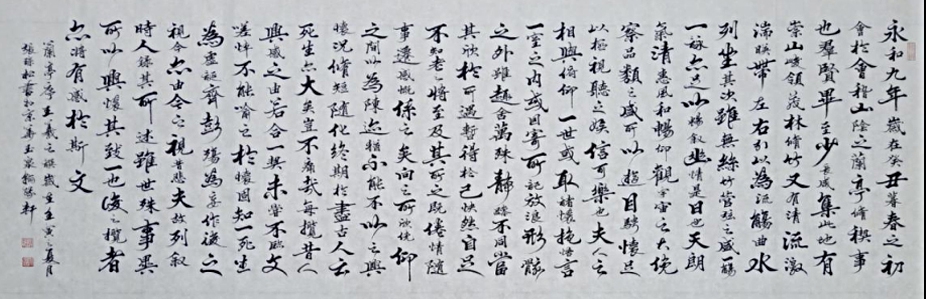 永和九年歲在癸丑暮春之初
會於會稽山陰之蘭亭脩禊事
也羣賢畢至少長咸集此地有
崇山峻領茂林脩竹又有清流激
湍映帶左右引以為流觴曲水
列坐其次雖無絲竹管弦之盛一觴
一詠亦足以暢敘幽情是日也天朗
氣清惠風和暢仰觀宇宙之大俛
察品類之盛所以遊目騁懷足
以極視聽之娛信可樂也夫人之
相與俯仰一世或取諸懷抱悟言
一室之內或因寄所託放浪形骸
之外雖趣舍萬殊靜躁不同當
其欣於所遇暫得於己怏然自足
不知老之將至及其所之既倦情隨
事遷感慨係之矣向之所欣俛仰
之間以為陳迹猶不能不以之興
懷況脩短隨化終期於盡古人云
死生亦大矣豈不痛哉每攬昔人
興感之由若合一契未嘗不臨文
嗟悼不能喻之於懷固知一死生
為虛誕齊彭殤為妄作後之
視今亦由今之視昔悲夫故列敘
時人錄其所述雖世殊事異
所以興懷其致一也後之攬者
亦將有感於斯文
蘭亭序王羲之撰歲在壬寅之夏月
張松書於京華玉泉勝軒